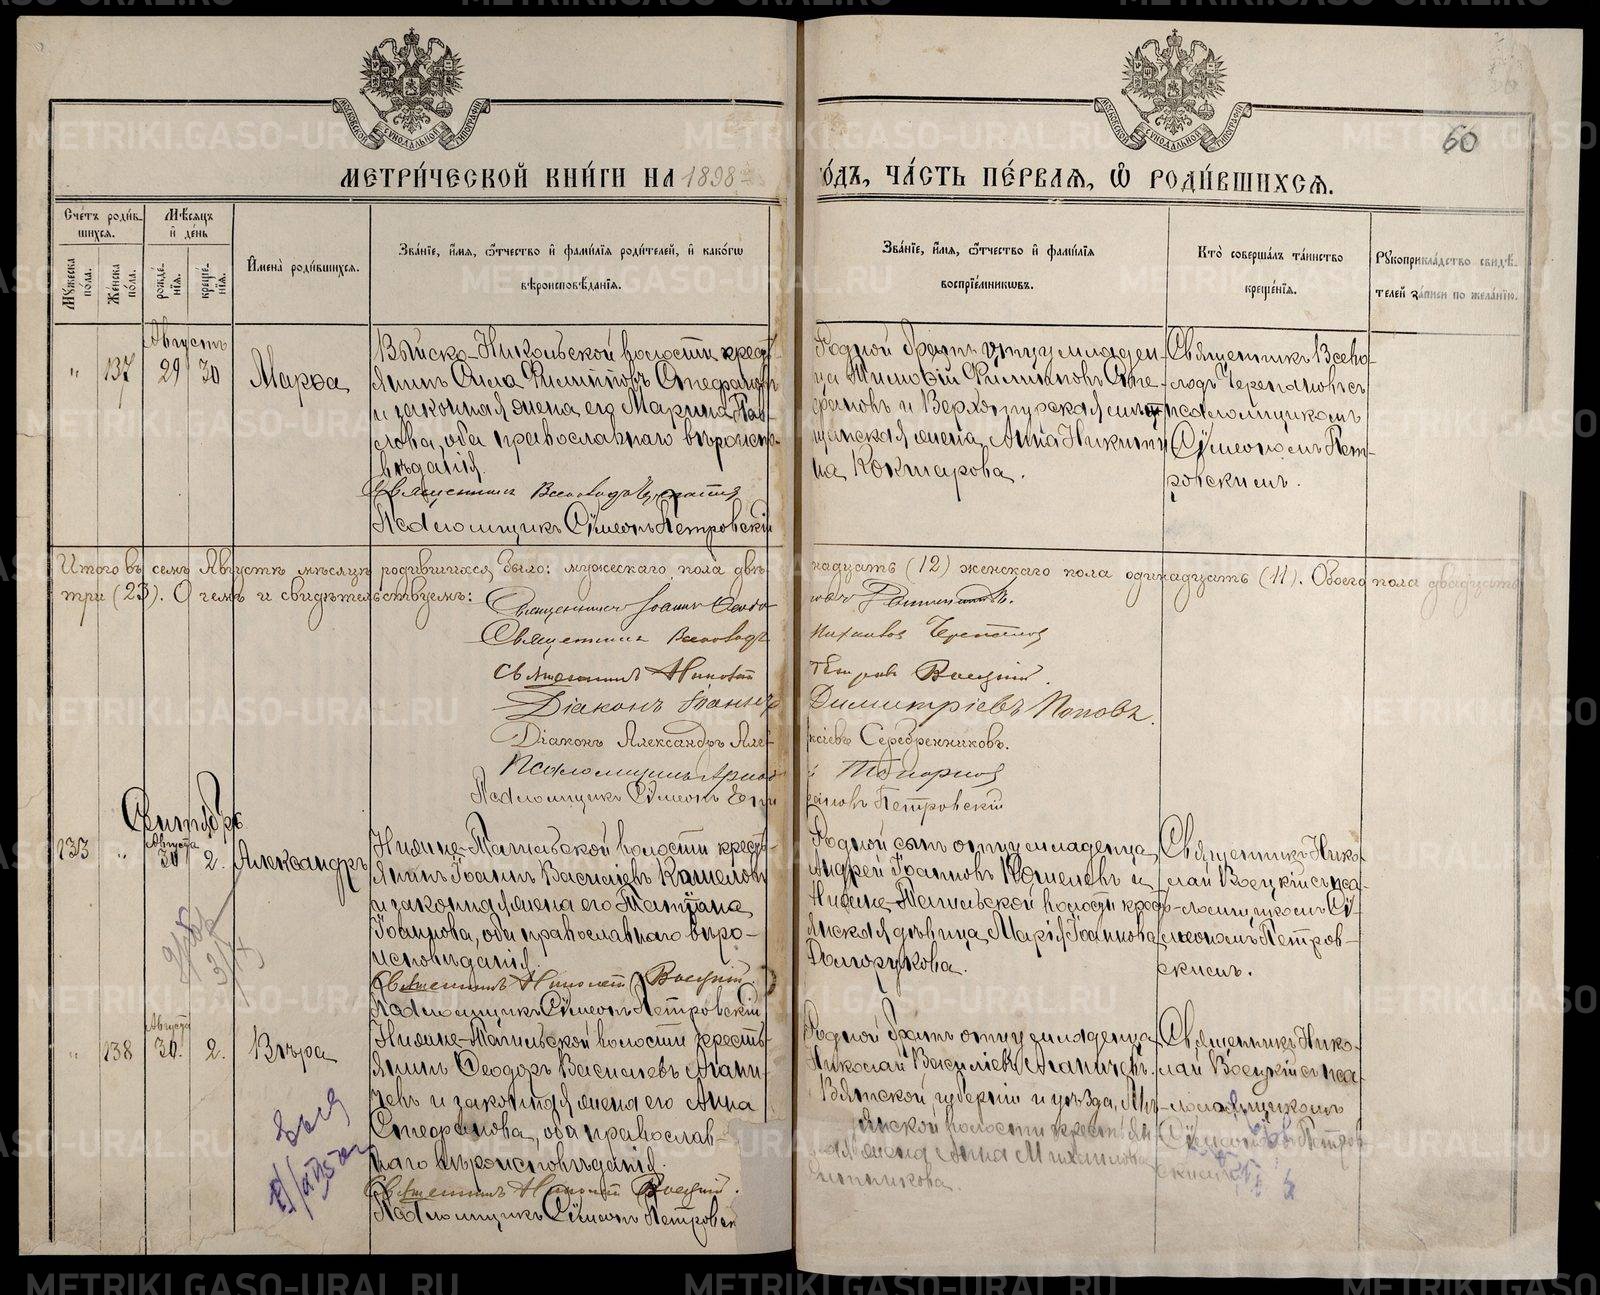 МЕТРИ́ЧЕСКОЙ КНИ́ГИ НА 1898
ГО́ДЪ, ЧА́СТЬ ПЕ́РВАЯ, Ѡ РОДИ́ВШИХСЯ.
60
Сче́тъ роди́вшихся.
Му́жеска по́ла.
Же́нска по́ла.
Мѣ́сяцъ и де́нь
рожде́нія.
креще́нія.
Имена̀ роди́вшихся.
Зва́нїе, и́мя, ѻ́тчество и фами́лїя роди́телей, и како́гѡ
вѣроисповѣ́данїя.
Зва́нїе, и́мя, ѻ́тчество и фами́лїя
воспрїе́мниковъ.
Кто̀ соверша́лъ та́инство
креще́нїя.
Рукоприкла́дство свидѣ́-
телей за́писи по жела́нїю.
Августъ
" 137 29 30 Марѳа
Выйско-Никольской волости кресть-
янинъ Сила Филипповъ Стефановъ
и законная жена его Марина Пав-
лова, оба православнаго вѣроиспо-
вѣданія.
Священникъ Всеволодъ Черепановъ
Псаломщикъ Сѵмеонъ Петровскій
Родной братъ отцу младен-
ца Тимоѳій Филипповъ Сте-
фановъ и Верхотурская мѣ-
щанская жена Анна Никити-
на Кокшарова.
Священникъ Всево-
лодъ Черепановъ съ
псаломщикомъ
Сѵмеономъ Пет-
ровскимъ.
Итого въ семъ Августѣ мѣсяцѣ родившихся было: мужескаго пола двѣ-
надцать (12) женскаго пола одинадцать (11). Обоего пола двадцать
три (23). О чемъ и свидѣтельствуемъ:
Священникъ Іоаннъ
Священникъ Всеволодъ
Черепановъ
Священникъ Николай
Петровъ Воецкій.
Діаконъ Іоаннъ
Димитріевъ Поповъ.
Діаконъ Александръ Алек-
сіевъ Серебренниковъ.
Псаломщикъ
Топорковъ
Псаломщикъ Сѵмеонъ
Петровскій
Сентябрь
133 " Августа 30 2. Александръ
Нижне-Тагильской волости кресть-
янинъ Іоаннъ Василіевъ Кошелевъ
и законная жена его Татіана
Іоаннова, оба православнаго вѣро-
исповѣданія.
Священникъ Николай Воецкій
Псаломщикъ Сѵмеонъ Петровскій
Родной сынъ отцу младенца
Андрей Іоанновъ Кошелевъ и
Нижне-Тагильской волости кресть-
янская дѣвица Марія Іоаннова
Долгорукова.
Священникъ Нико-
лай Воецкій съ пса-
ломщикомъ Сѵ-
меономъ Петров-
скимъ.
" 138 Августа 30. 2. Вѣра
Нижне-Тагильской волости кресть-
янинъ Ѳеодоръ Василіевъ Агани-
чевъ и законная жена его Анна
Стефанова, оба православ-
наго вѣроисповѣданія.
Священникъ Николай Воецкій.
Псаломщикъ Сѵмеонъ Петровск
Родной братъ отцу младенца
Николай Василіевъ Аганичевъ
Вятской губерніи и уѣзда,
волости крестьян
жена Анна Михаилова
Священникъ Нико-
лай Воецкій съ пса-
ломщикомъ
Сѵмеономъ Петров
скимъ
METRIKI.GASO-URAL.RU